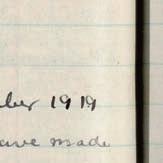 ber 1919
have made